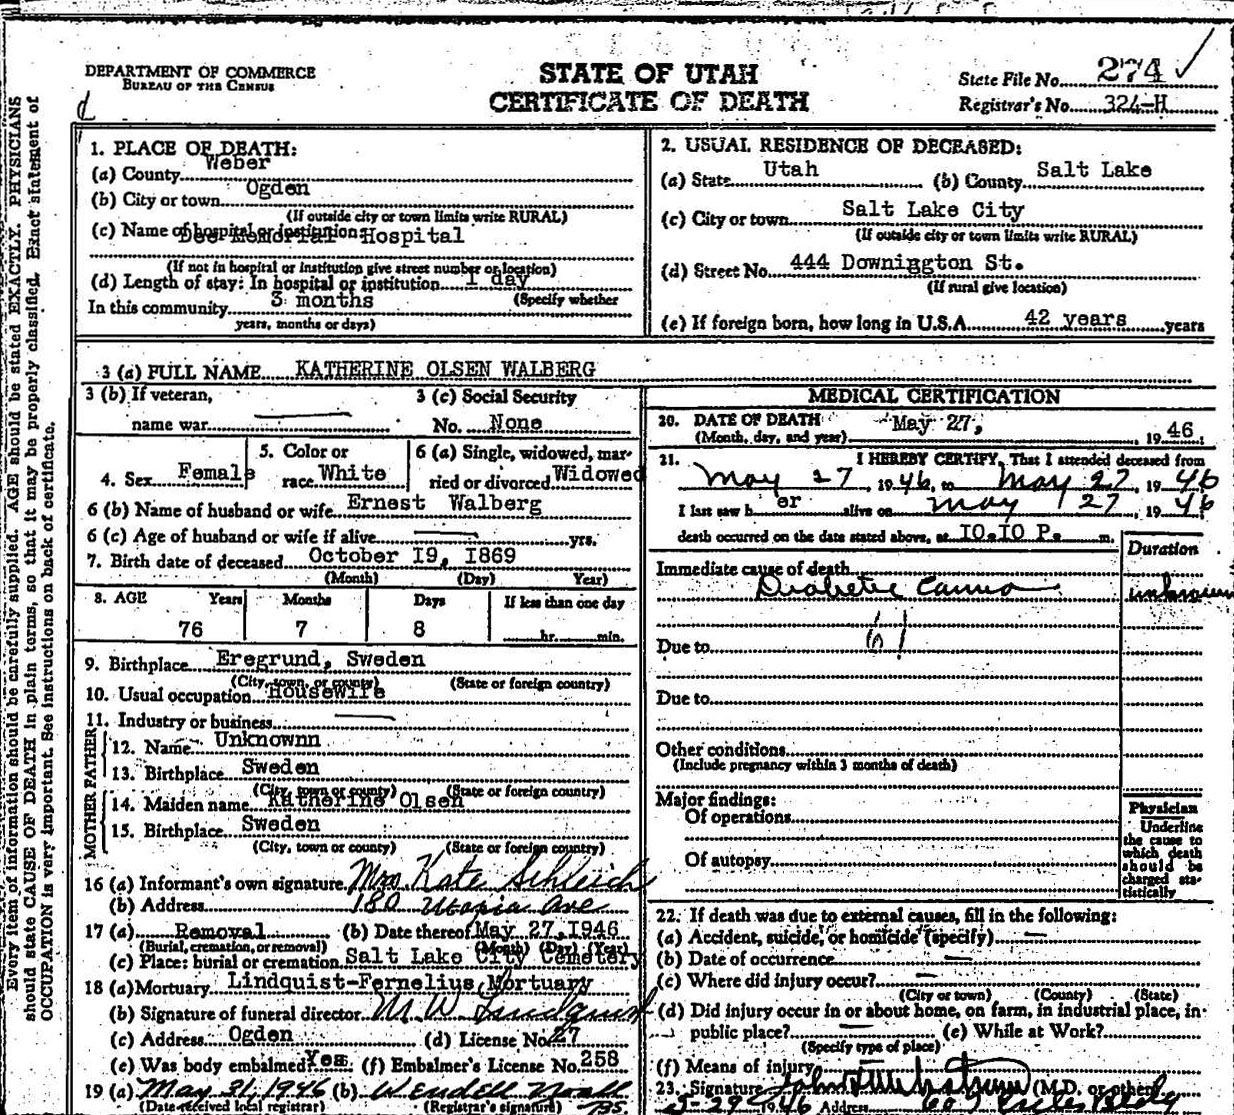 DEPARTMENT OF COMMERCE
BUREAU OF THE CENSUS
STATE OF UTAH
CERTIFICATE OF DEATH
State File No. 274 ✓
Registrar's No. 324-H
Every item of information should be carefully supplied. AGE should be stated EXACTLY. PHYSICIANS
should state CAUSE OF DEATH in plain terms, so that it may be properly classified. Exact statement of
OCCUPATION is very important. See instructions on back of certificate.
1. PLACE OF DEATH:
(a) County Weber
(b) City or town Ogden
(If outside city or town limits write RURAL)
(c) Name of hospital or institution: Dee Memorial Hospital
(If not in hospital or institution give street number or location)
(d) Length of stay: In hospital or institution 1 day
(Specify whether
In this community 3 months
years, months or days)
2. USUAL RESIDENCE OF DECEASED:
(a) State Utah (b) County Salt Lake
(c) City or town Salt Lake City
(If outside city or town limits write RURAL)
(d) Street No. 444 Downiggton St.
(If rural give location)
(e) If foreign born, how long in U.S.A. 42 years years
3 (a) FULL NAME KATHERINE OLSEN WALBERG
3 (b) If veteran,
name war
3 (c) Social Security
No. None
4. Sex Female
5. Color or
race White
6 (a) Single, widowed, mar-
ried or divorced Widowed
6 (b) Name of husband or wife Ernest Walberg
6 (c) Age of husband or wife if alive yrs.
7. Birth date of deceased October I9, I869
(Month) (Day) Year)
8. AGE Years Months Days If less than one day
76 7 8 hr. min.
9. Birthplace Eregrund, Sweden
(City, town, or county) (State or foreign country)
10. Usual occupation Housewife
11. Industry or business
FATHER
12. Name Unknownn
13. Birthplace Sweden
(City, town or county) (State or foreign country)
MOTHER
14. Maiden name Katherine Olsen
15. Birthplace Sweden
(City, town or county) (State or foreign country)
16 (a) Informant's own signature Mrs Kate Schleich
(b) Address 180 Utopia Ave
17 (a) Removal (b) Date thereof May 27, 1946
(Burial, cremation, or removal) (Month) (Day) (Year)
(c) Place: burial or cremation Salt Lake City Cemetery
18 (a) Mortuary Lindquist-Fernelius Mortuary
(b) Signature of funeral director M W Lindquist
(c) Address Ogden (d) License No. 27
(e) Was body embalmed? Yes (f) Embalmer's License No. 258
19 (a) May 31, 1946 (b) Wendell Noall
(Date received local registrar) (Registrar's signature)
MEDICAL CERTIFICATION
20. DATE OF DEATH May 27, 19 46
(Month, day, and year)
21. I HEREBY CERTIFY, That I attended deceased from
May 27, 19 46, to May 27, 19 46
I last saw h er alive on May 27 19 46
death occurred on the date stated above, at IO.IO P. m.
Duration
Immediate cause of death
Diabetic unknown
61
Due to
Due to
Other conditions
(Include pregnancy within 3 months of death)
Major findings:
Of operations
Of autopsy
Physician
Underline
the cause to
which death
should be
charged sta-
tistically
22. If death was due to external causes, fill in the following:
(a) Accident, suicide, or homicide (specify)
(b) Date of occurrence
(c) Where did injury occur?
(City or town) (County) (State)
(d) Did injury occur in or about home, on farm, in industrial place, in
public place? (e) While at Work?
(Specify type of place)
(f) Means of injury
23. Signature (M.D. or other)
5-29 1946 Address